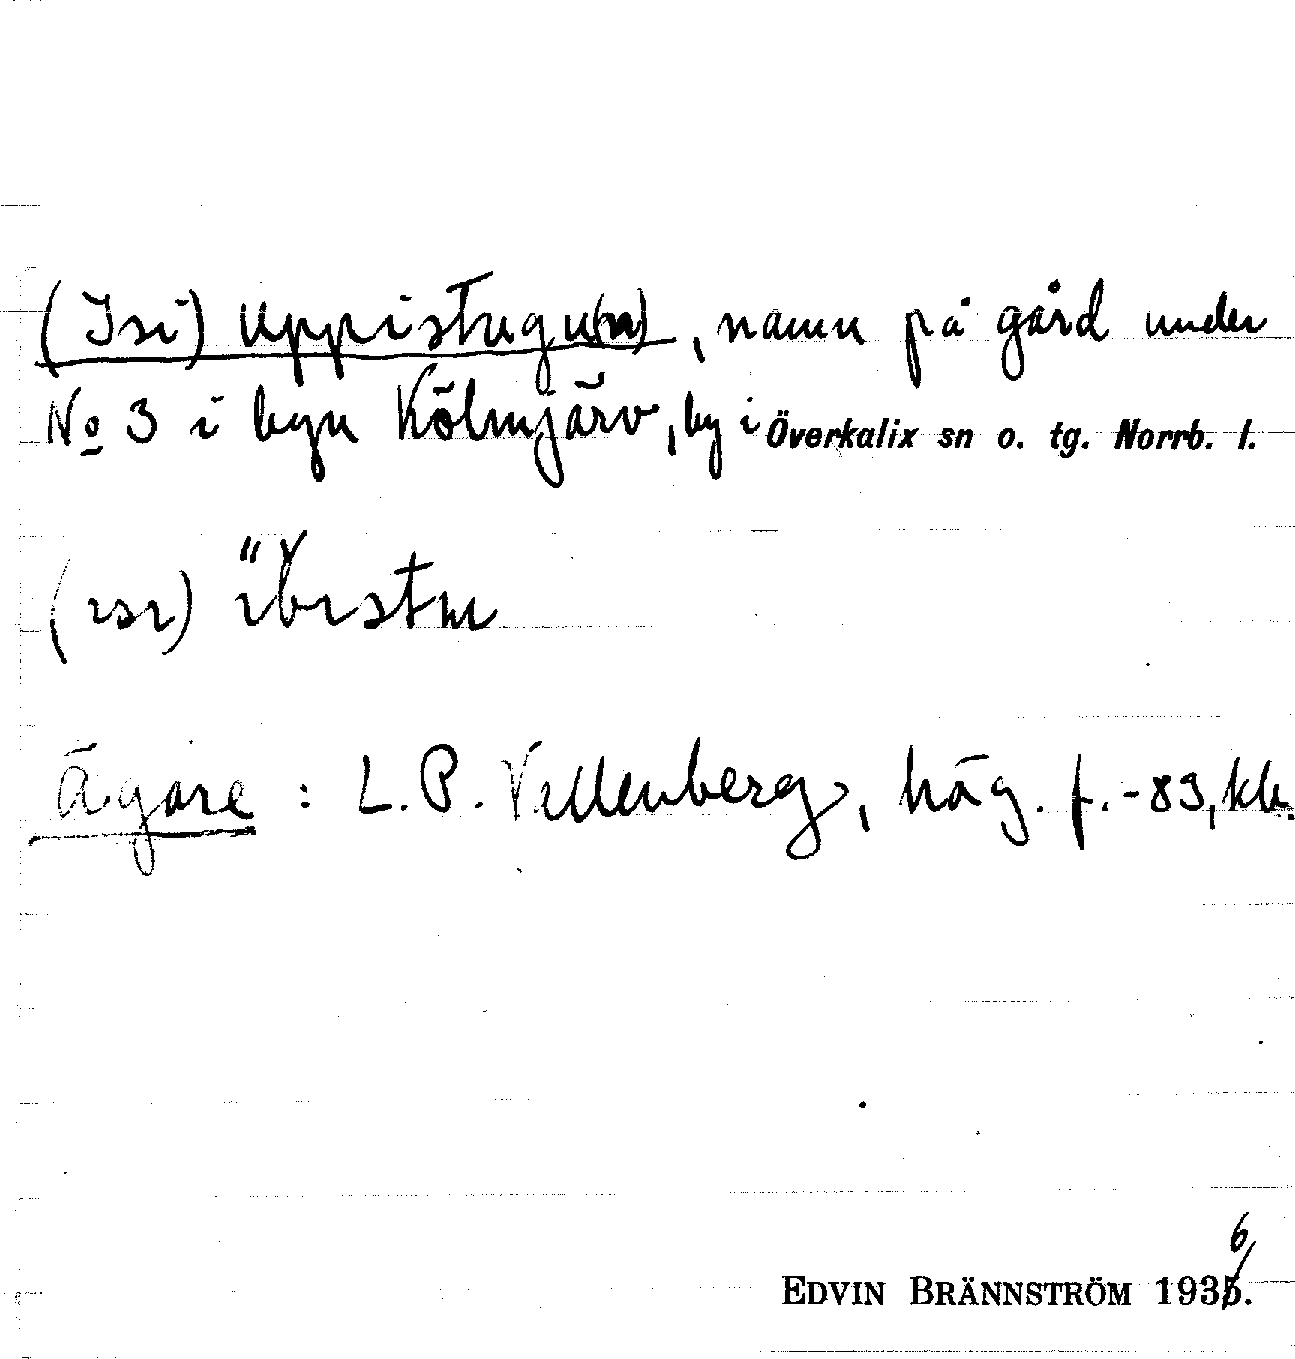 (Isi) Uppistugu(n), namn på gård under
No 3 i byn Kölmjärv, by i Överkalix sn o. tg. Norrb. l.
(ısı)
Ägare: L. P. Vellenberg, häg. f. -83, kb.
EDVIN BRÄNNSTRÖM 1936.